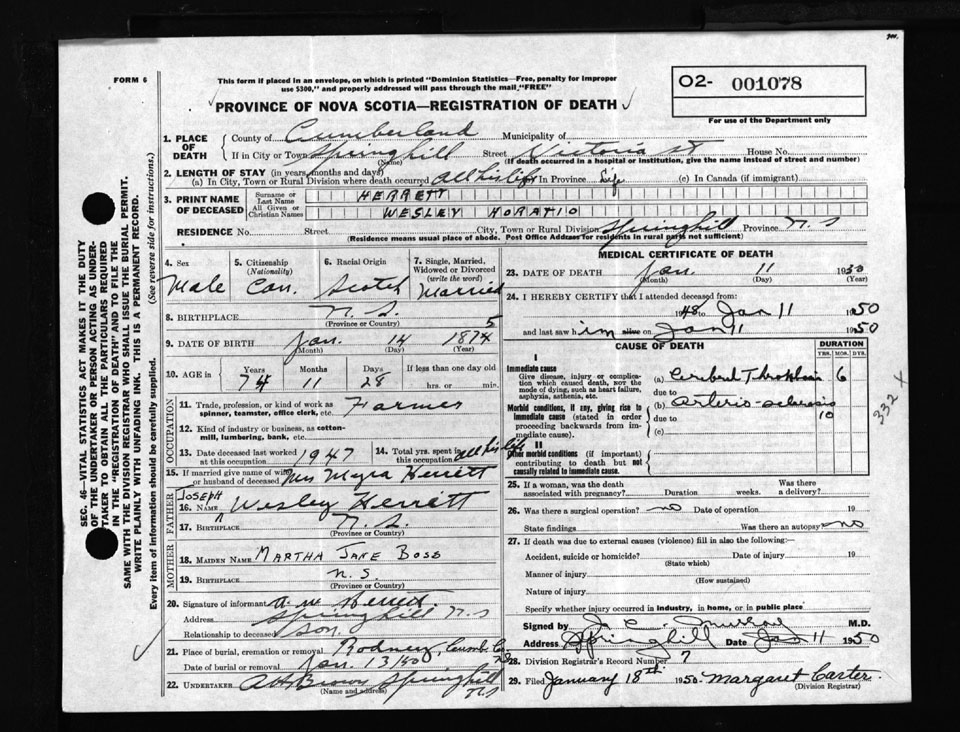 FORM 6
This form if placed in an envelope, on which is printed "Dominion Statistics—Free, penalty for improper
use $300," and properly addressed will pass through the mail "FREE"
PROVINCE OF NOVA SCOTIA—REGISTRATION OF DEATH
O2- 001078
For use of the Department only
SEC. 46—VITAL STATISTICS ACT MAKES IT THE DUTY
OF THE UNDERTAKER OR PERSON ACTING AS UNDER-
TAKER TO OBTAIN ALL THE PARTICULARS REQUIRED
IN THE "REGISTRATION OF DEATH" AND TO FILE THE
SAME WITH THE DIVISION REGISTRAR WHO SHALL ISSUE THE BURIAL PERMIT.
WRITE PLAINLY WITH UNFADING INK. THIS IS A PERMANENT RECORD.
Every item of information should be carefully supplied. (See reverse side for instructions.)
1. PLACE OF DEATH
County of Cumberland Municipality of
If in City or Town Springhill Street Victoria St House No.
(Name) (If death occurred in a hospital or institution, give the name instead of street and number)
2. LENGTH OF STAY (in years, months and days)
(a) In City, Town or Rural Division where death occurred All his life In Province Life (c) In Canada (if immigrant)
3. PRINT NAME OF DECEASED
Surname or Last Name HERRETT
All Given or Christian Names WESLEY HORATIO
RESIDENCE No. Street City, Town or Rural Division Springhill Province N.S
(Residence means usual place of abode. Post Office Address for residents in rural parts not sufficient)
4. Sex Male
5. Citizenship (Nationality) Can.
6. Racial Origin Scotch
7. Single, Married, Widowed or Divorced (write the word) Married
8. BIRTHPLACE N.S.
(Province or Country)
9. DATE OF BIRTH Jan. 14 1874 5
(Month) (Day) (Year)
10. AGE in Years 74 Months 11 Days 28 If less than one day old
hrs. or min.
OCCUPATION
11. Trade, profession, or kind of work as spinner, teamster, office clerk, etc. Farmer
12. Kind of industry or business, as cotton-mill, lumbering, bank, etc.
13. Date deceased last worked at this occupation 1947
14. Total yrs. spent in this occupation all his life
15. If married give name of wife or husband of deceased Mrs Myra Herrett
FATHER
16. NAME JOSEPH Wesley Herrett
17. BIRTHPLACE N.S.
(Province or Country)
MOTHER
18. MAIDEN NAME MARTHA JANE BOSS
19. BIRTHPLACE N.S.
(Province or Country)
20. Signature of informant Herrett
Address Springhill N.S
Relationship to deceased Son.
21. Place of burial, cremation or removal Rodney, Cumb. Co N.S
Date of burial or removal Jan. 13/50
22. UNDERTAKER Brown Springhill N.S
(Name and address)
MEDICAL CERTIFICATE OF DEATH
23. DATE OF DEATH Jan. 11 1950
(Month) (Day) (Year)
24. I HEREBY CERTIFY that I attended deceased from:
1948 to Jan 11 1950
and last saw him alive on Jan 11 1950
CAUSE OF DEATH
DURATION
YRS. MOS. DYS.
I
Immediate cause
Give disease, injury or complication which caused death, not the mode of dying, such as heart failure, asphyxia, asthenia, etc.
(a) Cerebral Thrombosis 6
due to
Morbid conditions, if any, giving rise to immediate cause (stated in order proceeding backwards from immediate cause).
(b) Arterio-sclerosis 10
due to
(c)
II
Other morbid conditions (if important) contributing to death but not causally related to immediate cause.
332 x
25. If a woman, was the death associated with pregnancy? Duration weeks. Was there a delivery?
26. Was there a surgical operation? no Date of operation 19
State findings Was there an autopsy no
27. If death was due to external causes (violence) fill in also the following:—
Accident, suicide or homicide? Date of injury 19
(State which)
Manner of injury
(How sustained)
Nature of injury
Specify whether injury occurred in industry, in home, or in public place
Signed by Murray M.D.
Address Springhill Date Jan 11 1950
28. Division Registrar's Record Number 7
29. Filed January 18th 1950 Margaret Carter.
(Division Registrar)